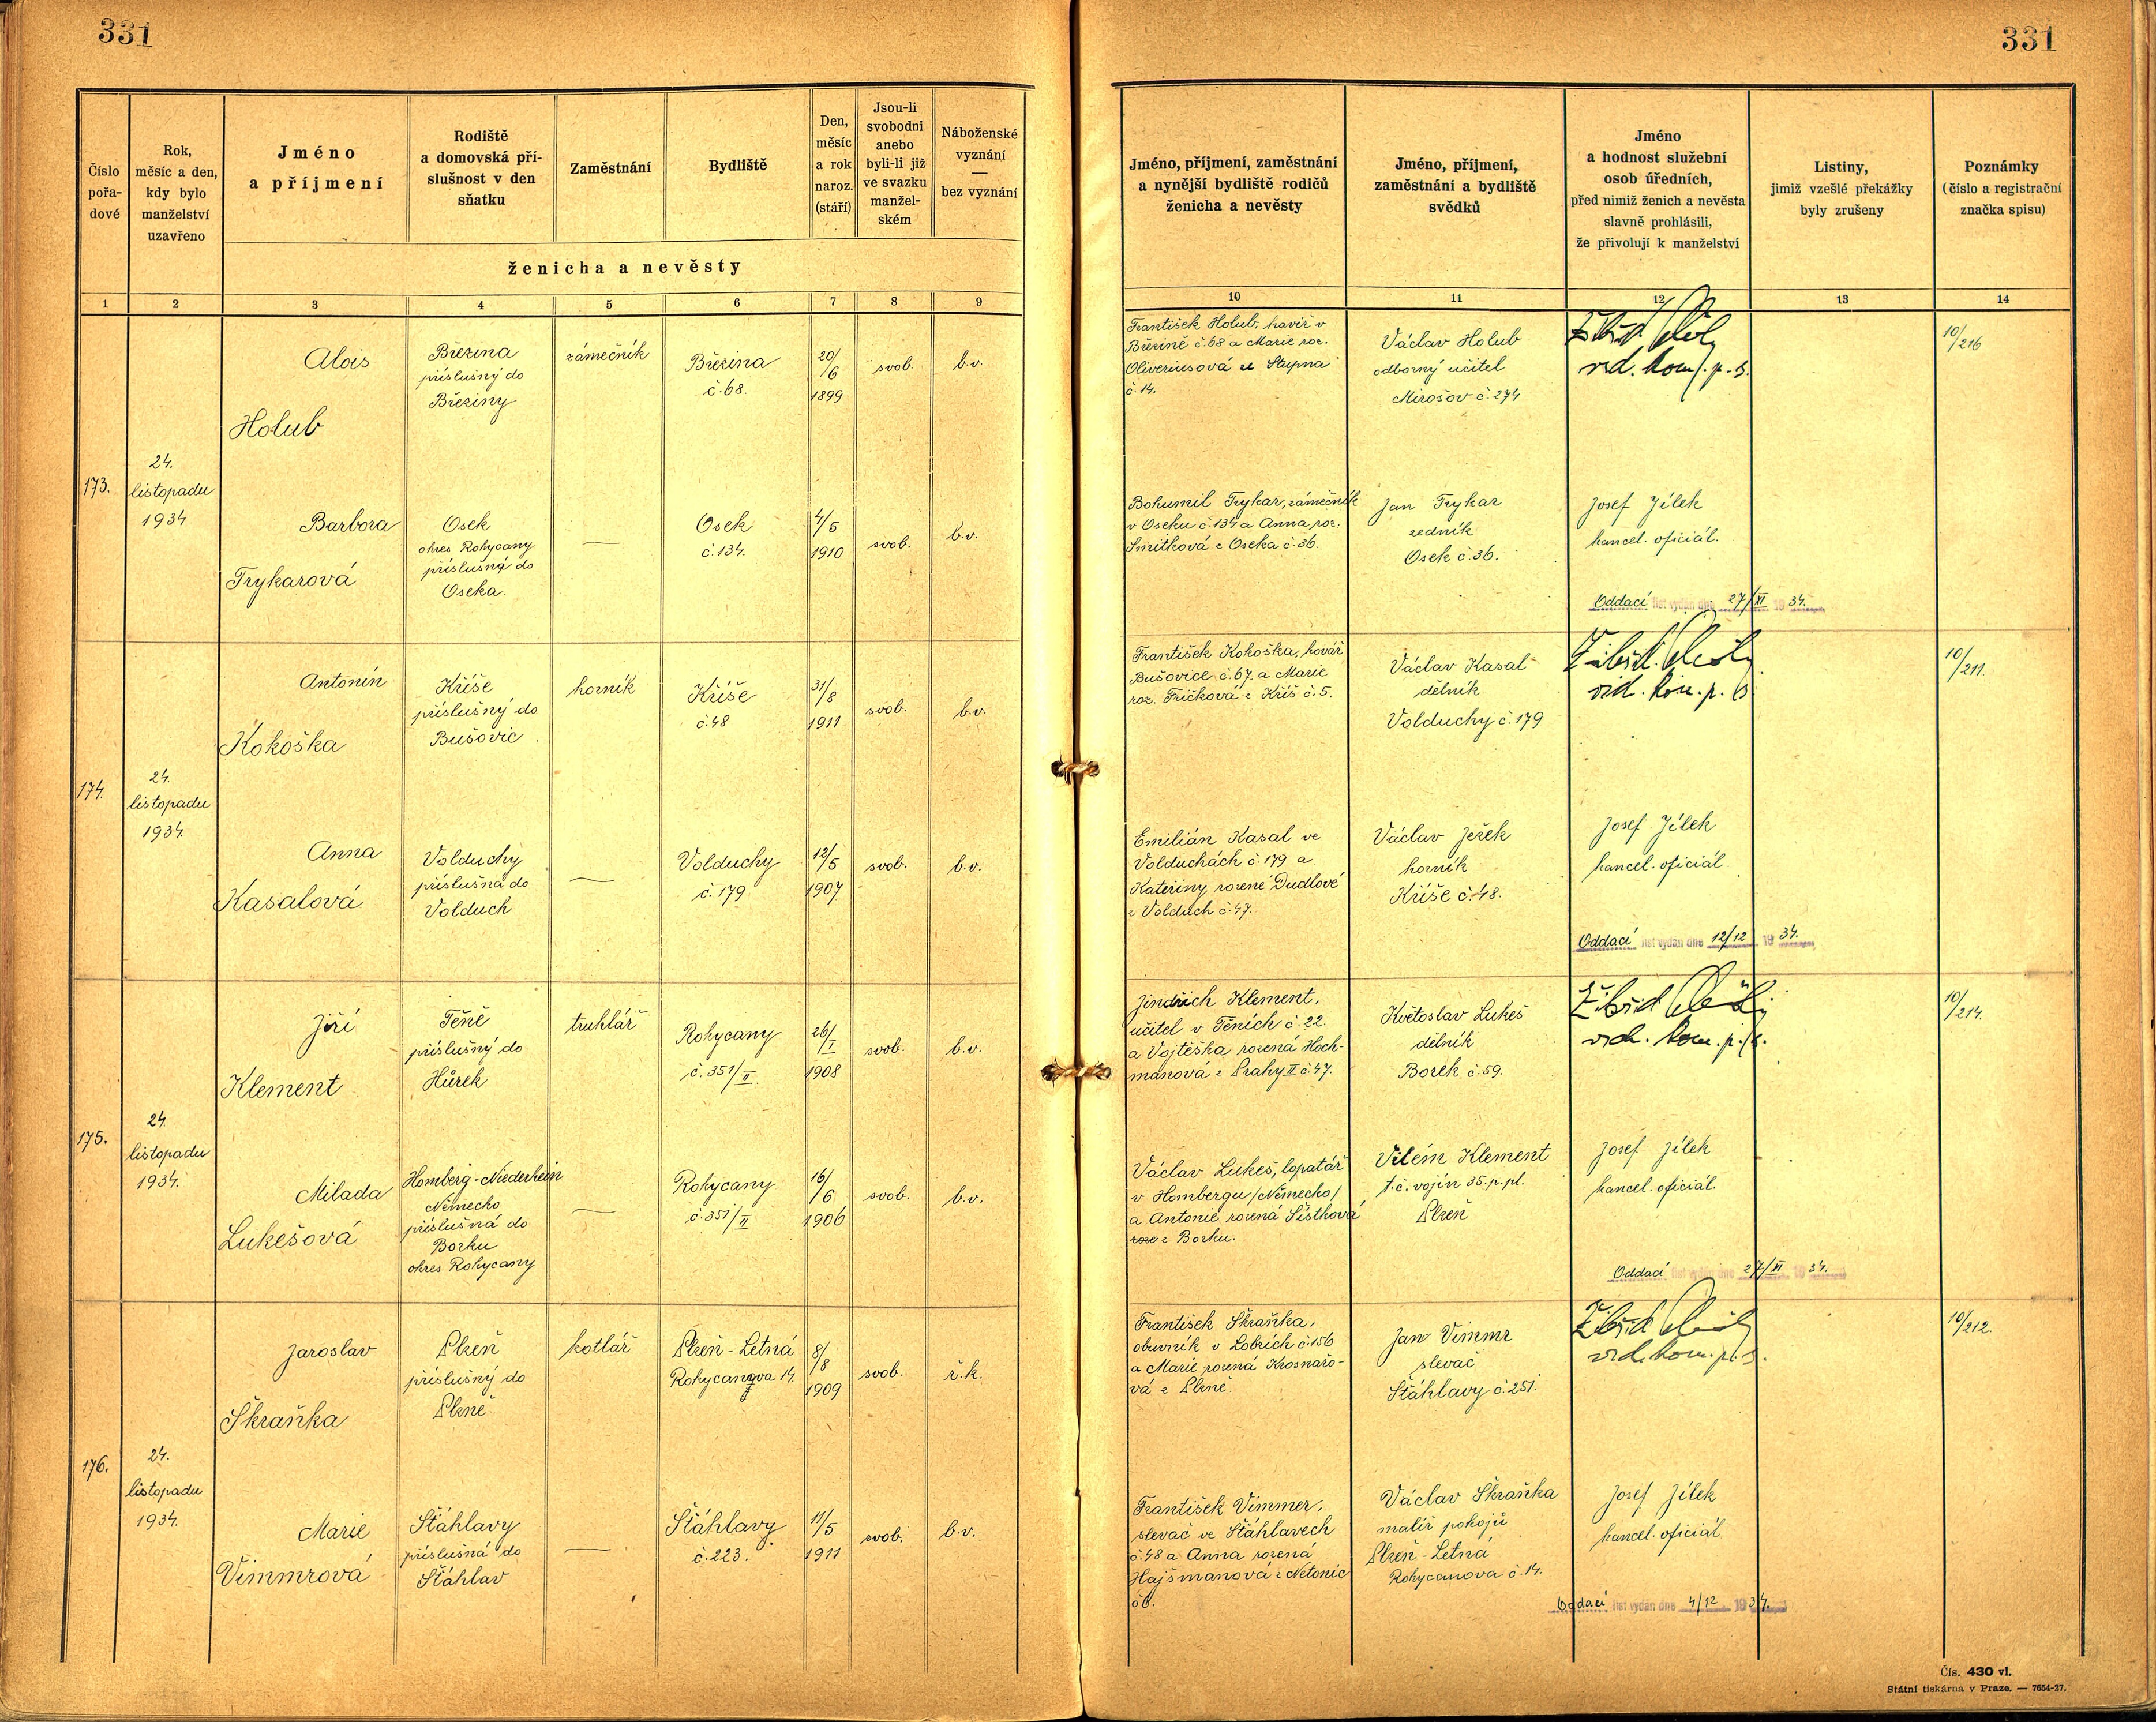 331
331
Číslo
pořa-
dové
Rok,
měsíc a den,
kdy bylo
manželství
uzavřeno
Jméno
a příjmení
Rodiště
a domovská pří-
slušnost v den
sňatku
Zaměstnání
Bydliště
Den,
měsíc
a rok
naroz.
(stáří)
Jsou-li
svobodni
anebo
byli-li již
ve svazku
manžel-
ském
Náboženské
vyznání
—
bez vyznání
ženicha a nevěsty
Jméno, příjmení, zaměstnání
a nynější bydliště rodičů
ženicha a nevěsty
Jméno, příjmení,
zaměstnání a bydliště
svědků
Jméno
a hodnost služební
osob úředních,
před nimiž ženich a nevěsta
slavně prohlásili,
že přivolují k manželství
Listiny,
jimiž vzešlé překážky
byly zrušeny
Poznámky
(číslo a registrační
značka spisu)
1 2 3 4 5 6 7 8 9 10 11 12 13 14
173.
24.
listopadu
1934
Alois
Holub
Březina
příslušný do
Březiny
zámečník
Březina
č.68.
20/6
1899
svob.
b.v.
František Holub, havíř v
Březině č.68 a Marie roz.
Oliveriusová ze Stupna
č.14.
Václav Holub
odborný učitel
Mirošov č.274
10/216
Barbora
Trykarová
Osek
okres Rokycany
příslušná do
Oseka.
—
Osek
č.134.
4/5
1910
svob.
b.v.
Bohumil Trykar, zámečník
v Oseku č.134 a Anna, roz.
Smitková z Oseka č.36.
Jan Trykar
zedník
Osek č.36.
Josef Jílek
kancel. oficiál.
Oddací list vydán dne 27/XI 1934.
174.
24.
listopadu
1934.
Antonín
Kokoška
Kříše
příslušný do
Bušovic
horník
Kříše
č.48
31/8
1911
svob.
b.v.
František Kokoška, kovář
Bušovice č.67. a Marie
roz. Fričková z Kříš č.5.
Václav Kasal
dělník
Volduchy č.179
10/211.
Anna
Kasalová
Volduchy
příslušná do
Volduch
—
Volduchy
č.179
12/5
1907
svob.
b.v.
Emilián Kasal ve
Volduchách č.179 a
Kateřiny, rozené Dudlové
z Volduch č.47.
Václav Ježek
horník
Kříše č.48.
Josef Jílek
kancel. oficiál.
Oddací list vydán dne 12/12 1934.
175.
24.
listopadu
1934.
Jiří
Klement
Těně
příslušný do
Hůrek
truhlář
Rokycany
č.351/II.
26/I
1908
svob.
b.v.
Jindřich Klement,
učitel v Těních č.22.
a Vojtěška rozená Hoch-
manová z Prahy II č.47.
Květoslav Lukeš
dělník
Borek č.59.
10/214.
Milada
Lukešová
Homberg-Niederhein
Německo
příslušná do
Borku
okres Rokycany
—
Rokycany
č.351/II
16/6
1906
svob.
b.v.
Václav Lukeš, lopatář
v Hombergu /Německo/
a Antonie, rozená Šístková
roz z Borku.
Vilém Klement
t.č. vojín 35.p.pl.
Plzeň
Josef Jílek
kancel. oficiál.
Oddací list vydán dne 27/XI 1934.
176.
24.
listopadu
1934.
Jaroslav
Škraňka
Plzeň
příslušný do
Plzně
kotlář
Plzeň-Letná
Rokycanova 14.
8/8
1909
svob.
ř.k.
František Škraňka,
obuvník v Lobzích č.156
a Marie rozená Krosnařo-
vá z Plzně.
Jan Vimmr
slevač
Šťáhlavy č.251.
10/212.
Marie
Vimmrová
Šťáhlavy
příslušná do
Šťáhlav
—
Šťáhlavy
č.223.
11/5
1911
svob.
b.v.
František Vimmer,
slevač ve Šťáhlavech
č.48 a Anna rozená
Hajšmanová z Netonic
č6.
Václav Škraňka
malíř pokojů
Plzeň-Letná
Rokycanova č.14.
Josef Jílek
kancel. oficiál
Oddací list vydán dne 4/12 1934.
Čís. 430 vl.
Státní tiskárna v Praze. — 7654-27.